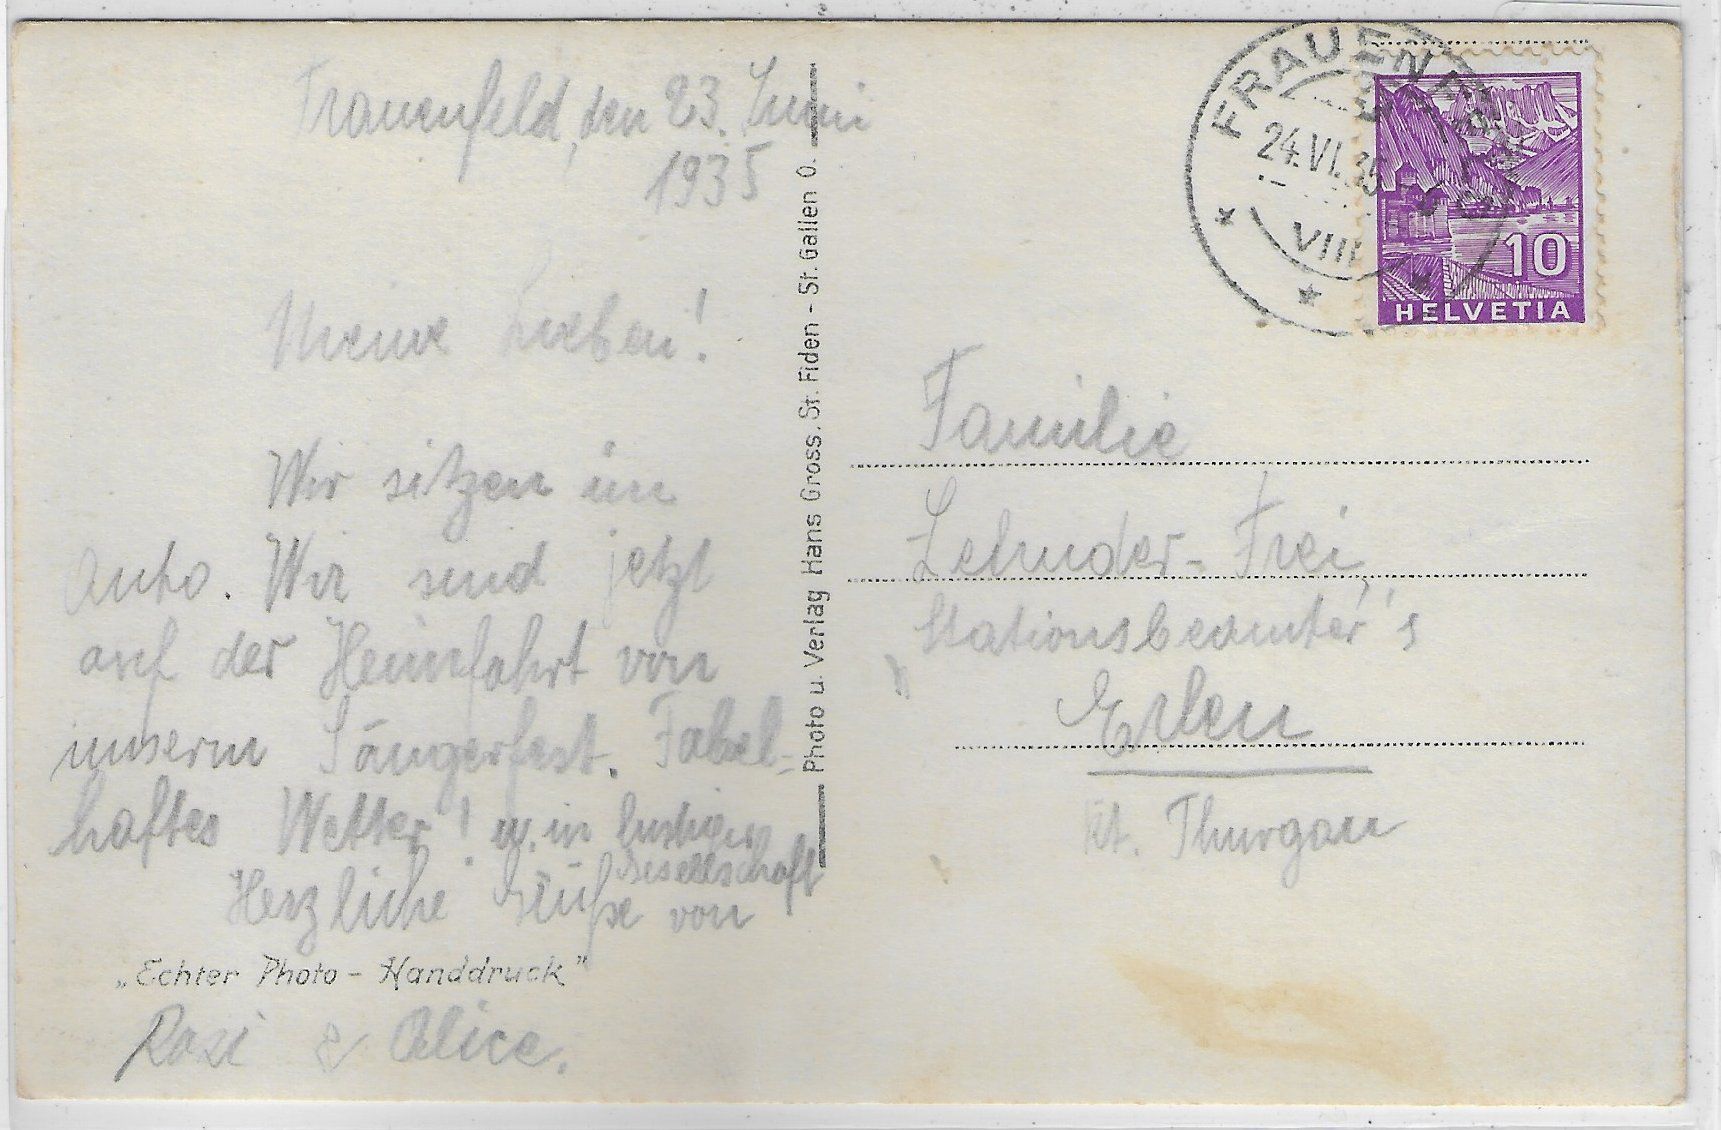 Frauenfeld, den 23. Juni
1935
Meine Lieben!
Wir sitzen im
Auto. Wir sind jetzt
auf der Heimfahrt von
unserm Sängerfest. Fabel-
haftes Wetter! u. in lustiger
Gesellschaft
Herzliche Grüße von
„Echter Photo - Handdruck"
Rosi & Alice.
Photo u. Verlag Hans Gross, St. Fiden - St. Gallen O.
FRAUENFELD
24.VI.35
VIII
10
HELVETIA
Familie
Frei,
Stationsbeamter's
Erlen
Kt. Thurgau